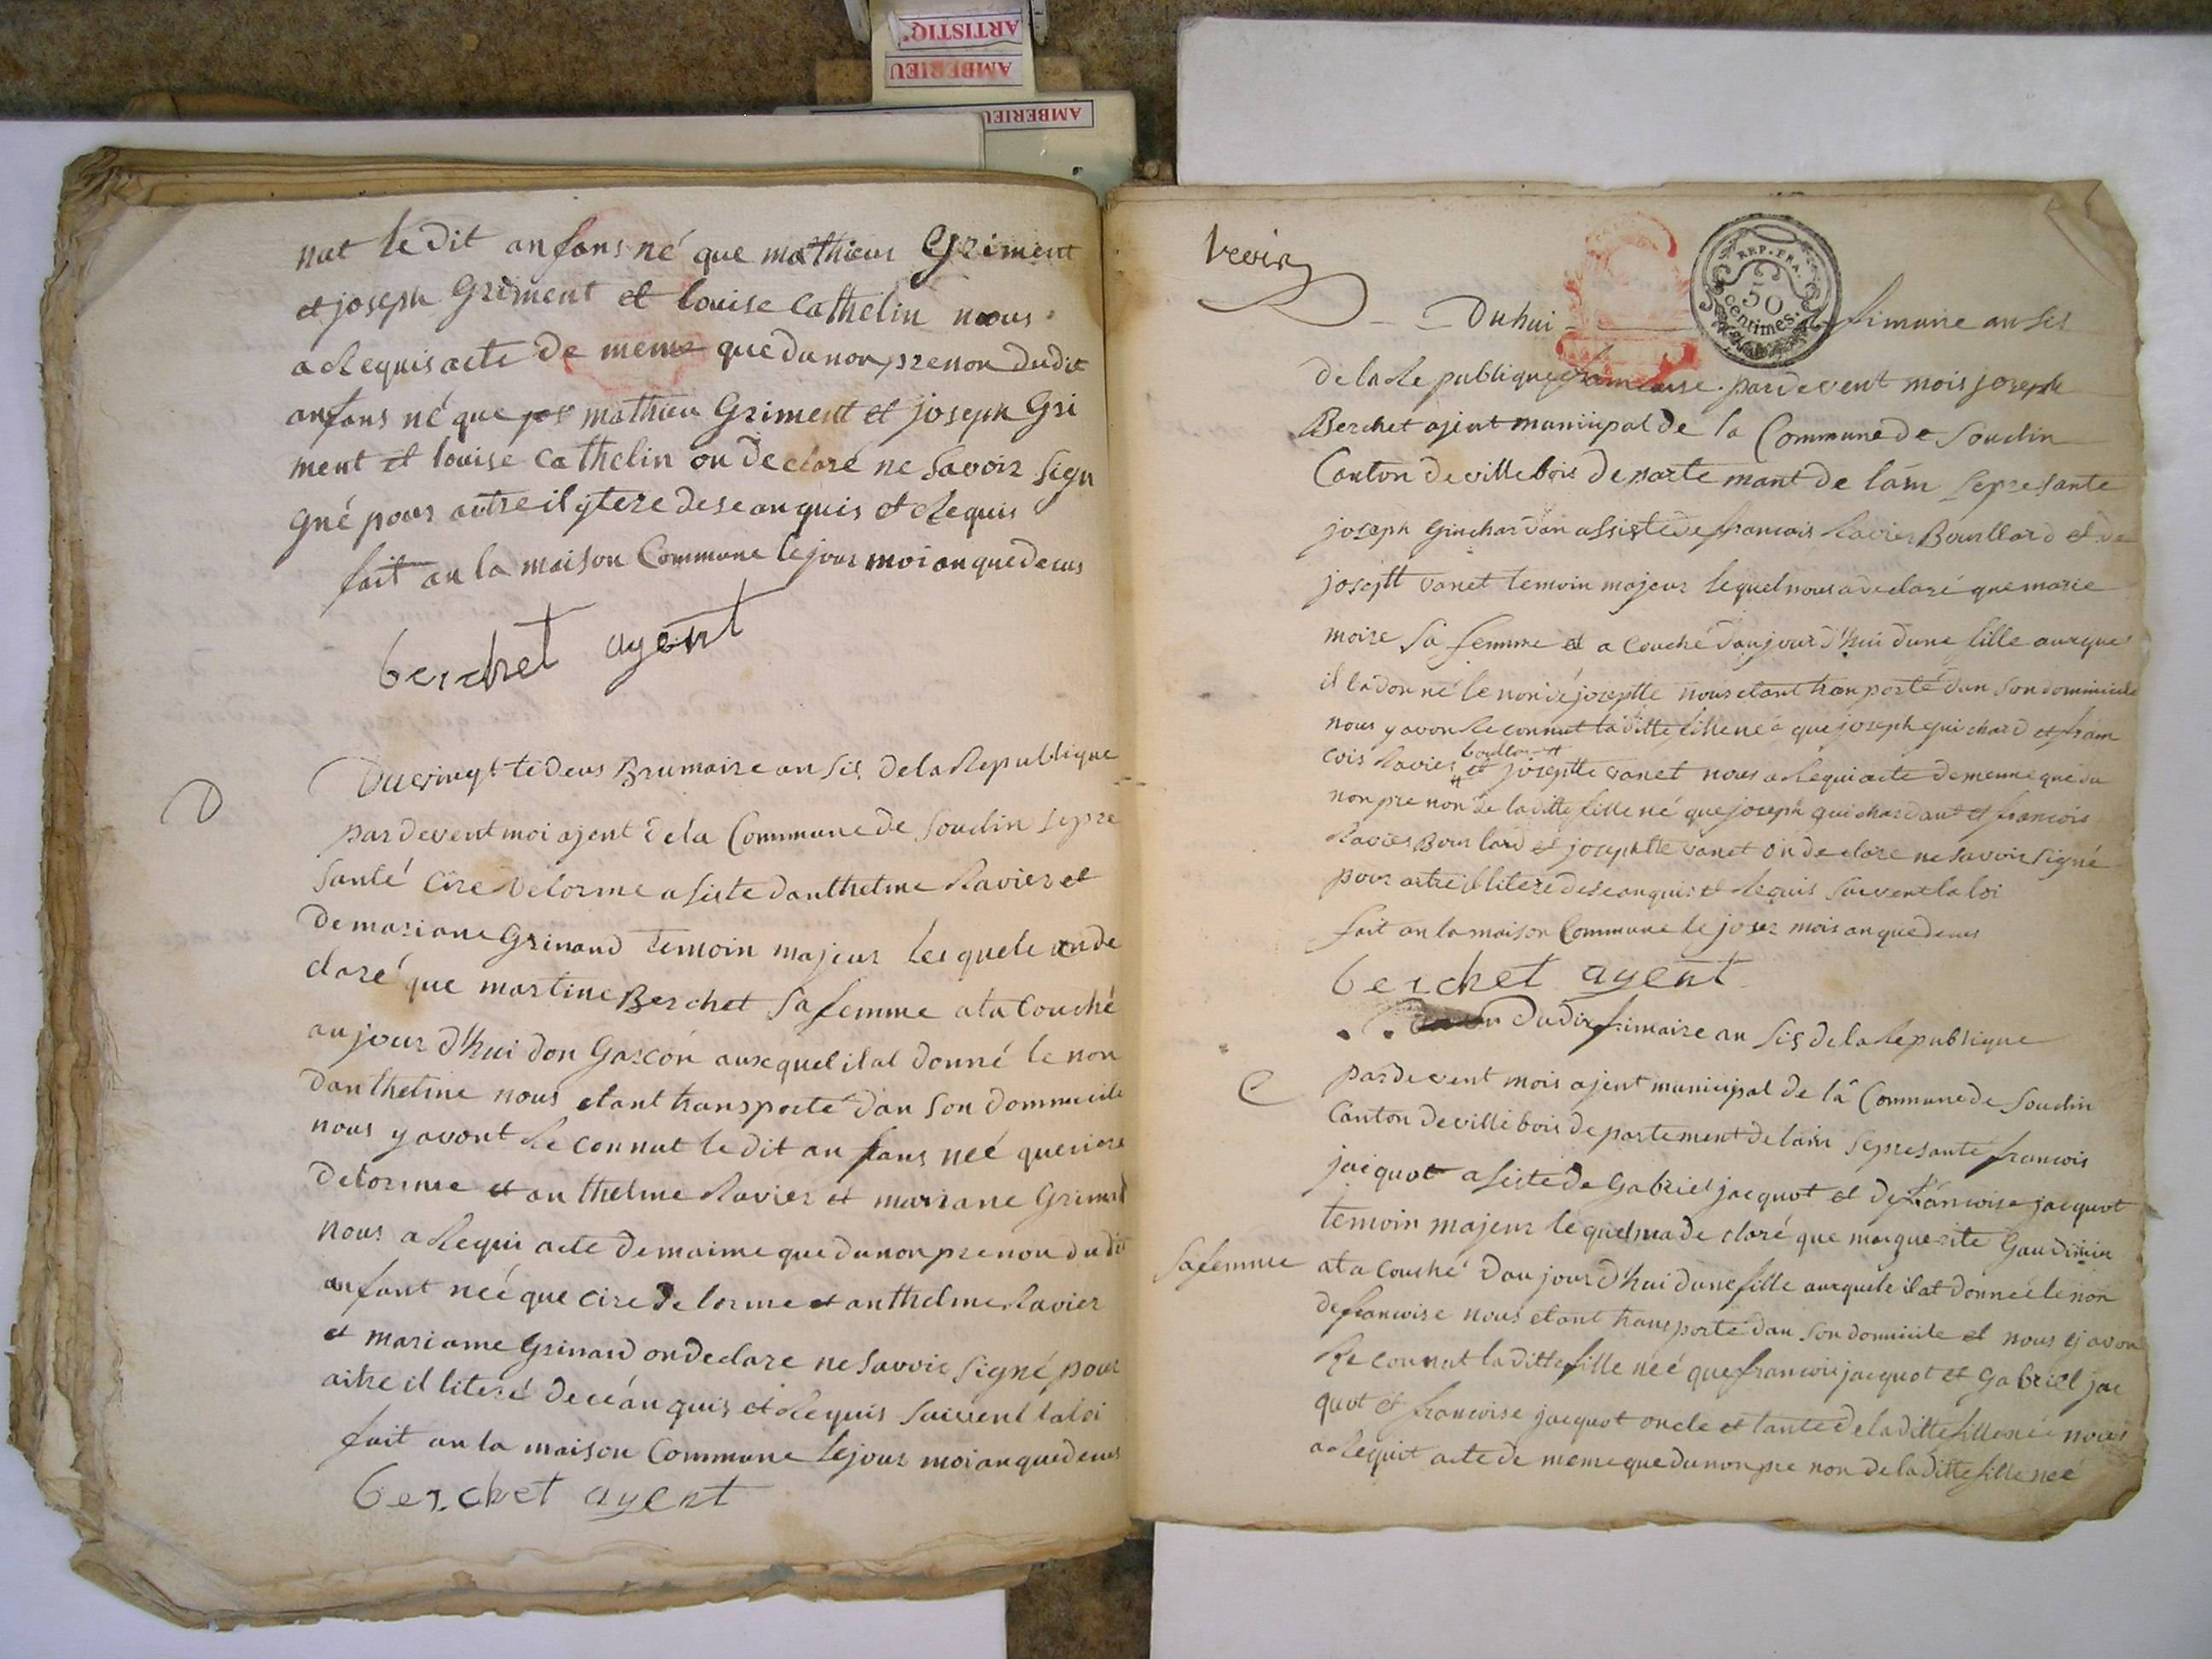 ARTISTIQ'
AMBERIEU
AMBERIEU
nut le dit anfans né que mathieu Griment
et joseph Griment et louise Cathelin nous
a Requis acte de meme que du non prenon dudit
anfans né que jos mathieu Griment et joseph Gri
ment et louise Cathelin on declaré ne Savoir Sign
gné pour autre il ytere dese anquis et Requis
fait an la maison Commune le jour moi an que decus
berchet agent
D
Du vingt te deus Brumaire an Sis de la Republique
par devent moi ajent de la Commune de Soudin Sepre
Santé Cire Delorme a Siste danthelme Ravier et
de mariane Grinand temoin majeur Les quele on de
claré que martine Berchet Sa femme a ta Couché
au jour d'hui don Garcon aux quel il al donné le non
danthelme nous etant transporté dan Son dommicile
nous y avont Reconnut le dit an fans neé que cire
Delorme et anthelme Ravier et mariane Grinad
nous a Requi acte de maime que du non prenon du dit
anfant neé que cire Delorme et anthelme Ravier
et mariane Grinard on declare ne Savoir Signé pour
aitre il literé de ceanquis et Requis Suivent la loi
fait an la maison Commune le jour moi an que decus
berchet agent
REP. FRA.
50
centimes.
Du hui frimaire an Sis
de la Republique francaise par devent mois joseph
Berchet ajent municipal de la Commune de Soudin
Canton de villebois departemant de lain Sepresante
joseph Guichardan assisté de francois Ravier Bouillard et de
joseptt vanet temoin majeur le quel nous a declaré que marie
moire Sa femme et a Couché daujour d'hui dune fille auxque
il la donné le non dé joseptte nous etant tranporté dan Son dominicile
nous y avon Reconnut la ditte fille neé que joseph guichard et fran
cois Ravier boullard et joseptte vanet nous a Requi acte de meme que du
non prenon de la ditte fille né que joseph guichardant et francois
Ravier Bourlard et josephtte vanet on declare ne Savoir Signé
pour aitre il litere dese anquis et Requis Suivent la loi
fait an la maison Commune le jour mois an que decus
berchet agent
Du dix frimaire an Sis de la Republique
C
par devent mois ajent municipal de la Commune de Soudin
Canton de villebois departement de lain Sepresanté francois
jacquot a Siste de Gabriel jacquot et de francoise jacquot
temoin majeur le quel ma de claré que marguerite Gaudinin
Sa femme
at a Couché dau jour d'hui dune fille auxquele il at donneé le non
de francoise nous etant transporté dan Son domicile et nous y avon
Reconnut la ditte fille neé que francois jacquot et Gabriel jac
quot et francoise jacquot oncle et tante de la ditte fille né nous
a Requit acte de meme que du non pre non de la ditte fille neé